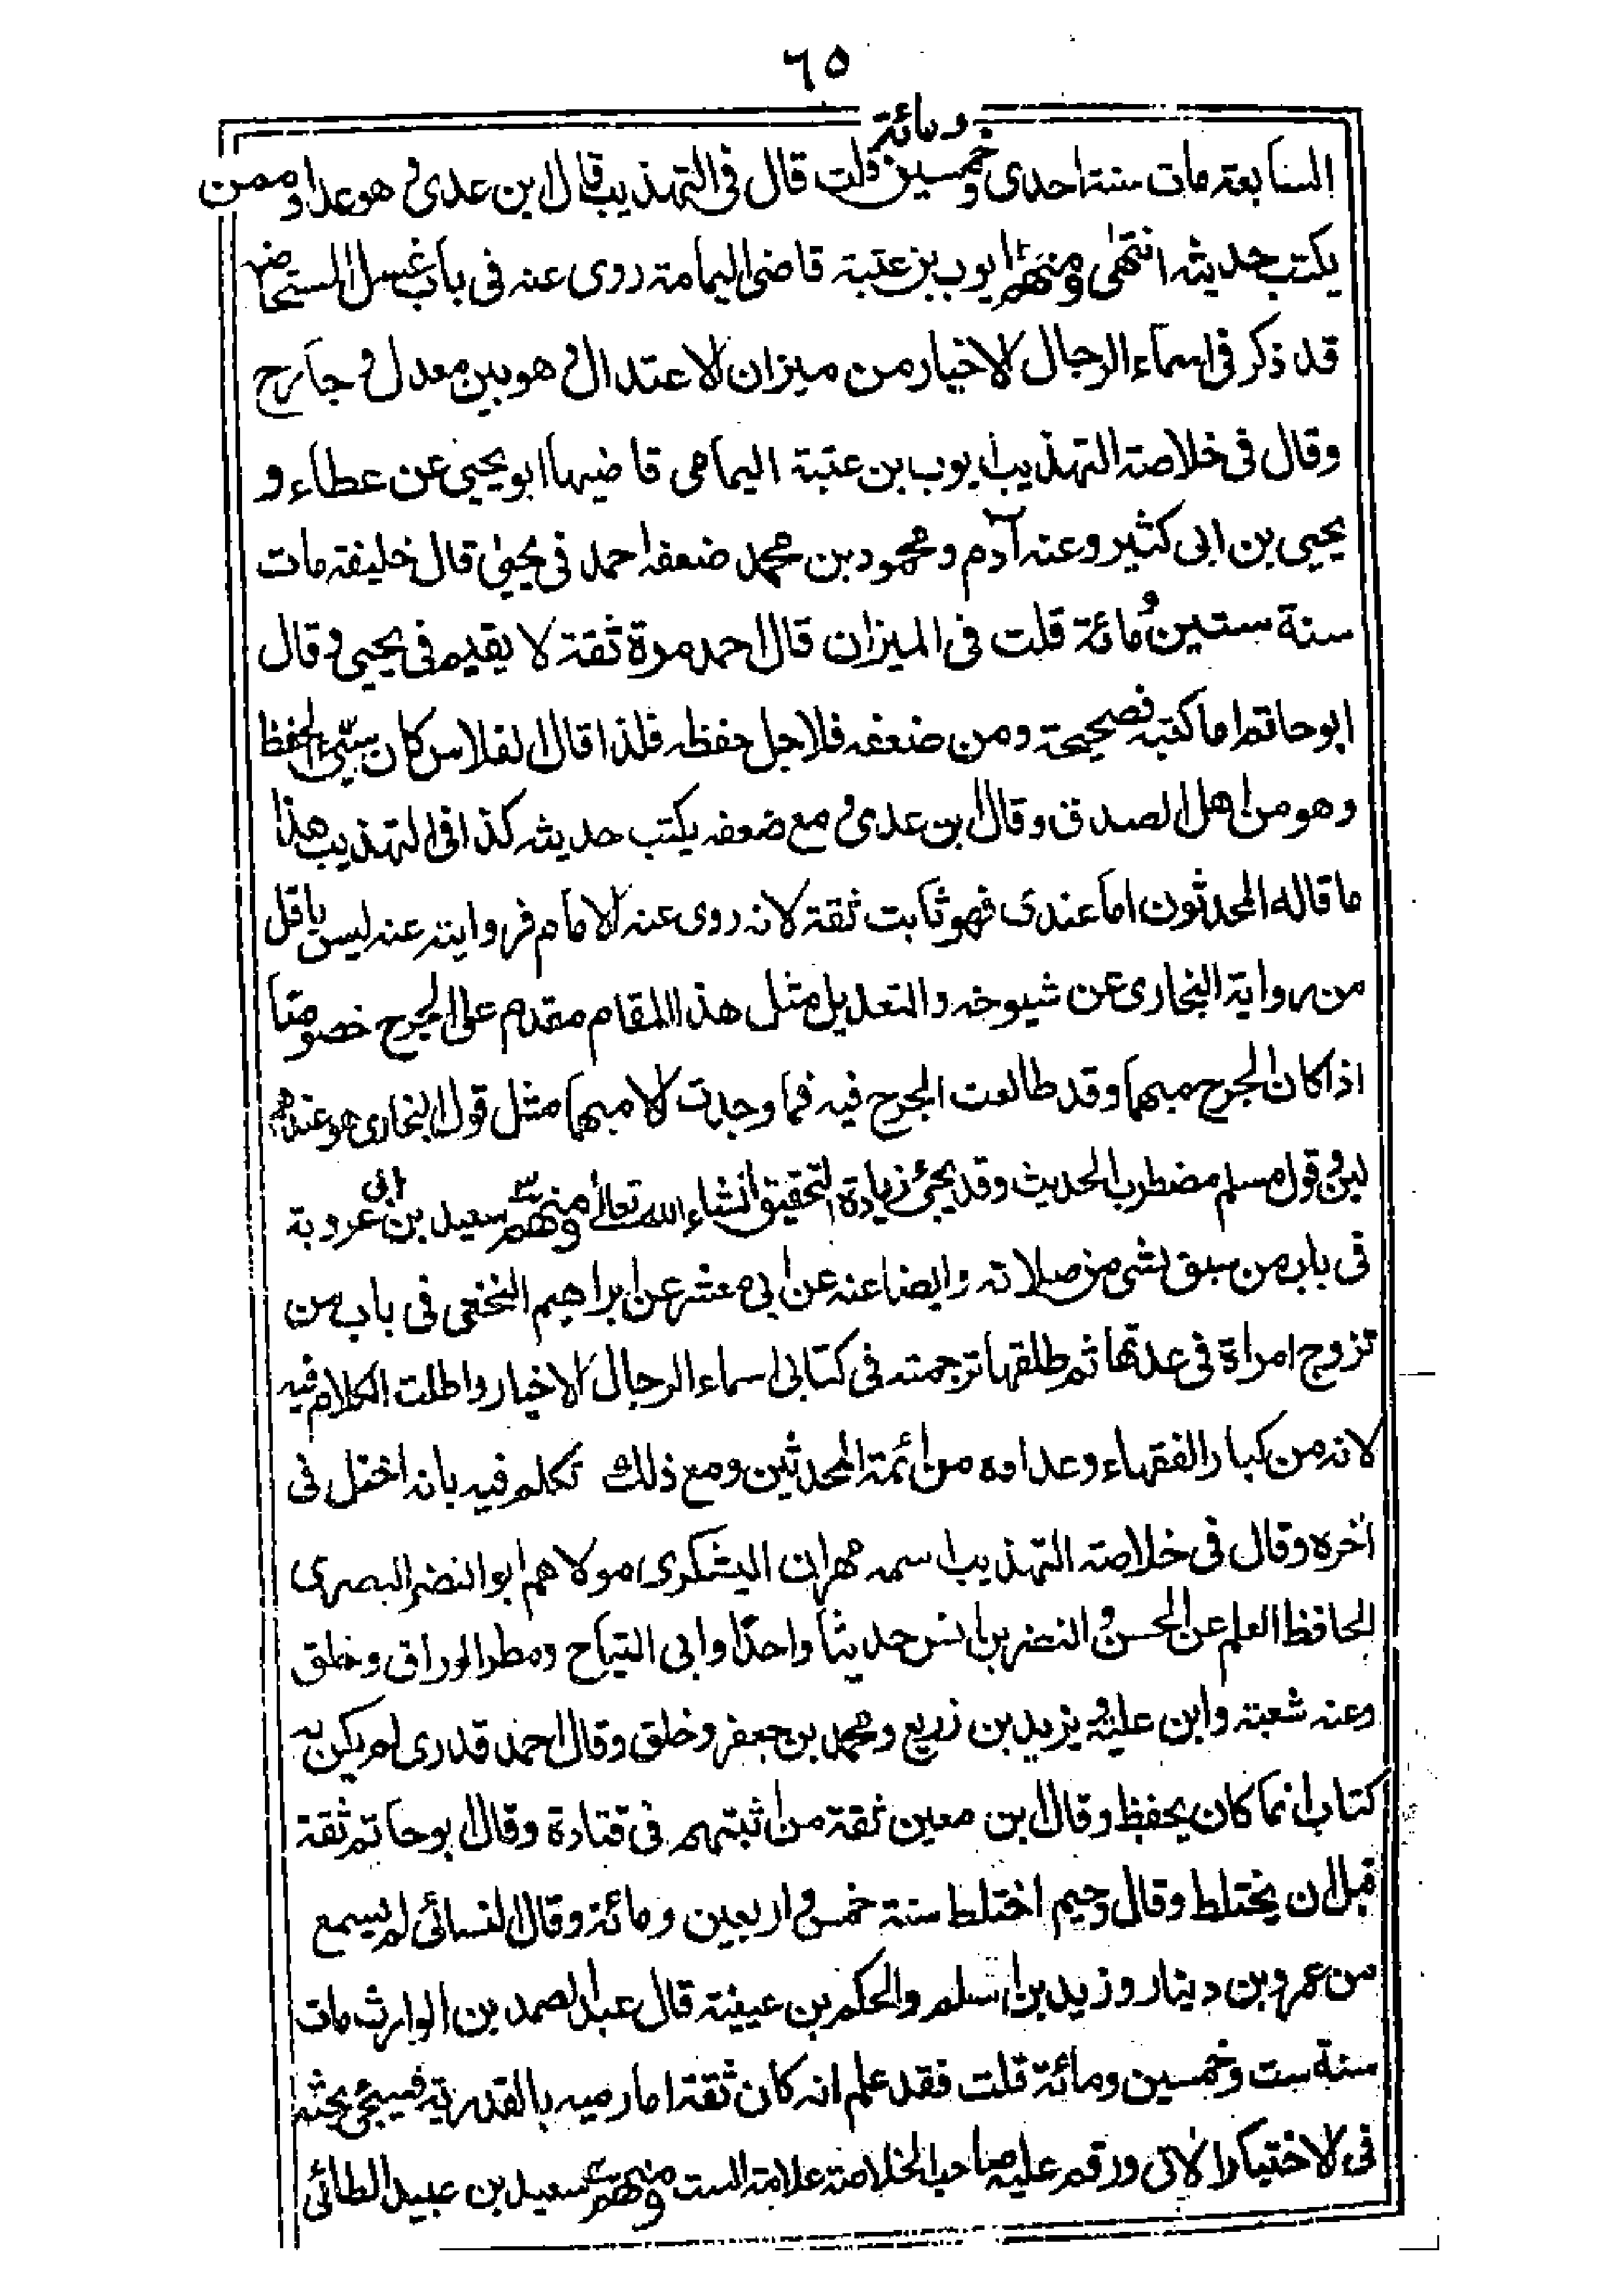 ٦٥
السابعة مات سنة احدى وخمسين ومائة قلت قال فى التهذيب قال ابن عدى وهو عداد ممن
يكتب حديثه انتهى ومنهم ايوب بن عتبة قاضى اليمامة روى عنه فى باب غسل المستحاضة
قد ذكر فى اسماء الرجال الاخيار من ميزان الاعتدال وهو بين معدل وجارح
وقال فى خلاصة التهذيب ايوب بن عتبة اليمامى قاضيها ابو يحيى عن عطاء و
يحيى بن ابى كثير وعنه آدم ومحمود بن محمد ضعفه احمد فى يحيى قال خليفة مات
سنة ستين ومائة قلت فى الميزان قال احمد مرة ثقة لا يقيم فى يحيى وقال
ابو حاتم اما كتبه فصحيحة ومن ضعفه فلاجل حفظه فلذا قال الفلاس كان سيئ الحفظ
وهو من اهل الصدق وقال ابن عدى ومع ضعفه يكتب حديثه كذا فى التهذيب هذا
ما قاله المحدثون اما عندى فهو ثابت ثقة لانه روى عنه الامام فروايته عنه ليس باقل
من رواية البخارى عن شيوخه والتعديل مثل هذا المقام مقدم على الجرح خصوصا
اذا كان الجرح مبهما وقد طالعت الجرح فيه فما وجدت الا مبهما مثل قول البخارى هو عندهم
لين وقول مسلم مضطرب الحديث وقد يجئ زيادة التحقيق انشاء الله تعالى ومنهم سعيد بن ابى عروبة
فى باب من سبق بشى من صلاته وايضا عنه عن ابى معشر عن ابراهيم النخعى فى باب من
تزوج امراة فى عدتها ثم طلقها ترجمته فى كتابى اسماء الرجال الاخيار واطلت الكلام فيه
لانه من كبار الفقهاء وعدادہ من ائمة المحدثين ومع ذلك تكلم فيه بانه اختل فى
آخره وقال فى خلاصة التهذيب اسمه مهران اليشكرى مولاهم ابو النضر البصرى
الحافظ العلم عن الحسن والنضر بن انس حديثا واحدًا وابى التياح ومطر الوراق وخلق
وعنه شعبة وابن علية ويزيد بن زريع ومحمد بن جعفر وخلق وقال احمد قدرى لم يكن له
كتاب انما كان يحفظ وقال ابن معين ثقة من اثبتهم فى قتادة وقال ابو حاتم ثقة
قبل ان يختلط وقال دحيم اختلط سنة خمس واربعين ومائة وقال النسائى لم يسمع
من عمرو بن دينار وزيد بن اسلم والحكم بن عيينة قال عبد الصمد بن الوارث مات
سنة ست وخمسين ومائة قلت فقد علم انه كان ثقة اما رميه بالقدرية فسيجئ بحثه
فى الاختيار الآتى ورقم عليه صاحب الخلاصة علامة الست ومنهم سعيد بن عبيد الطائى